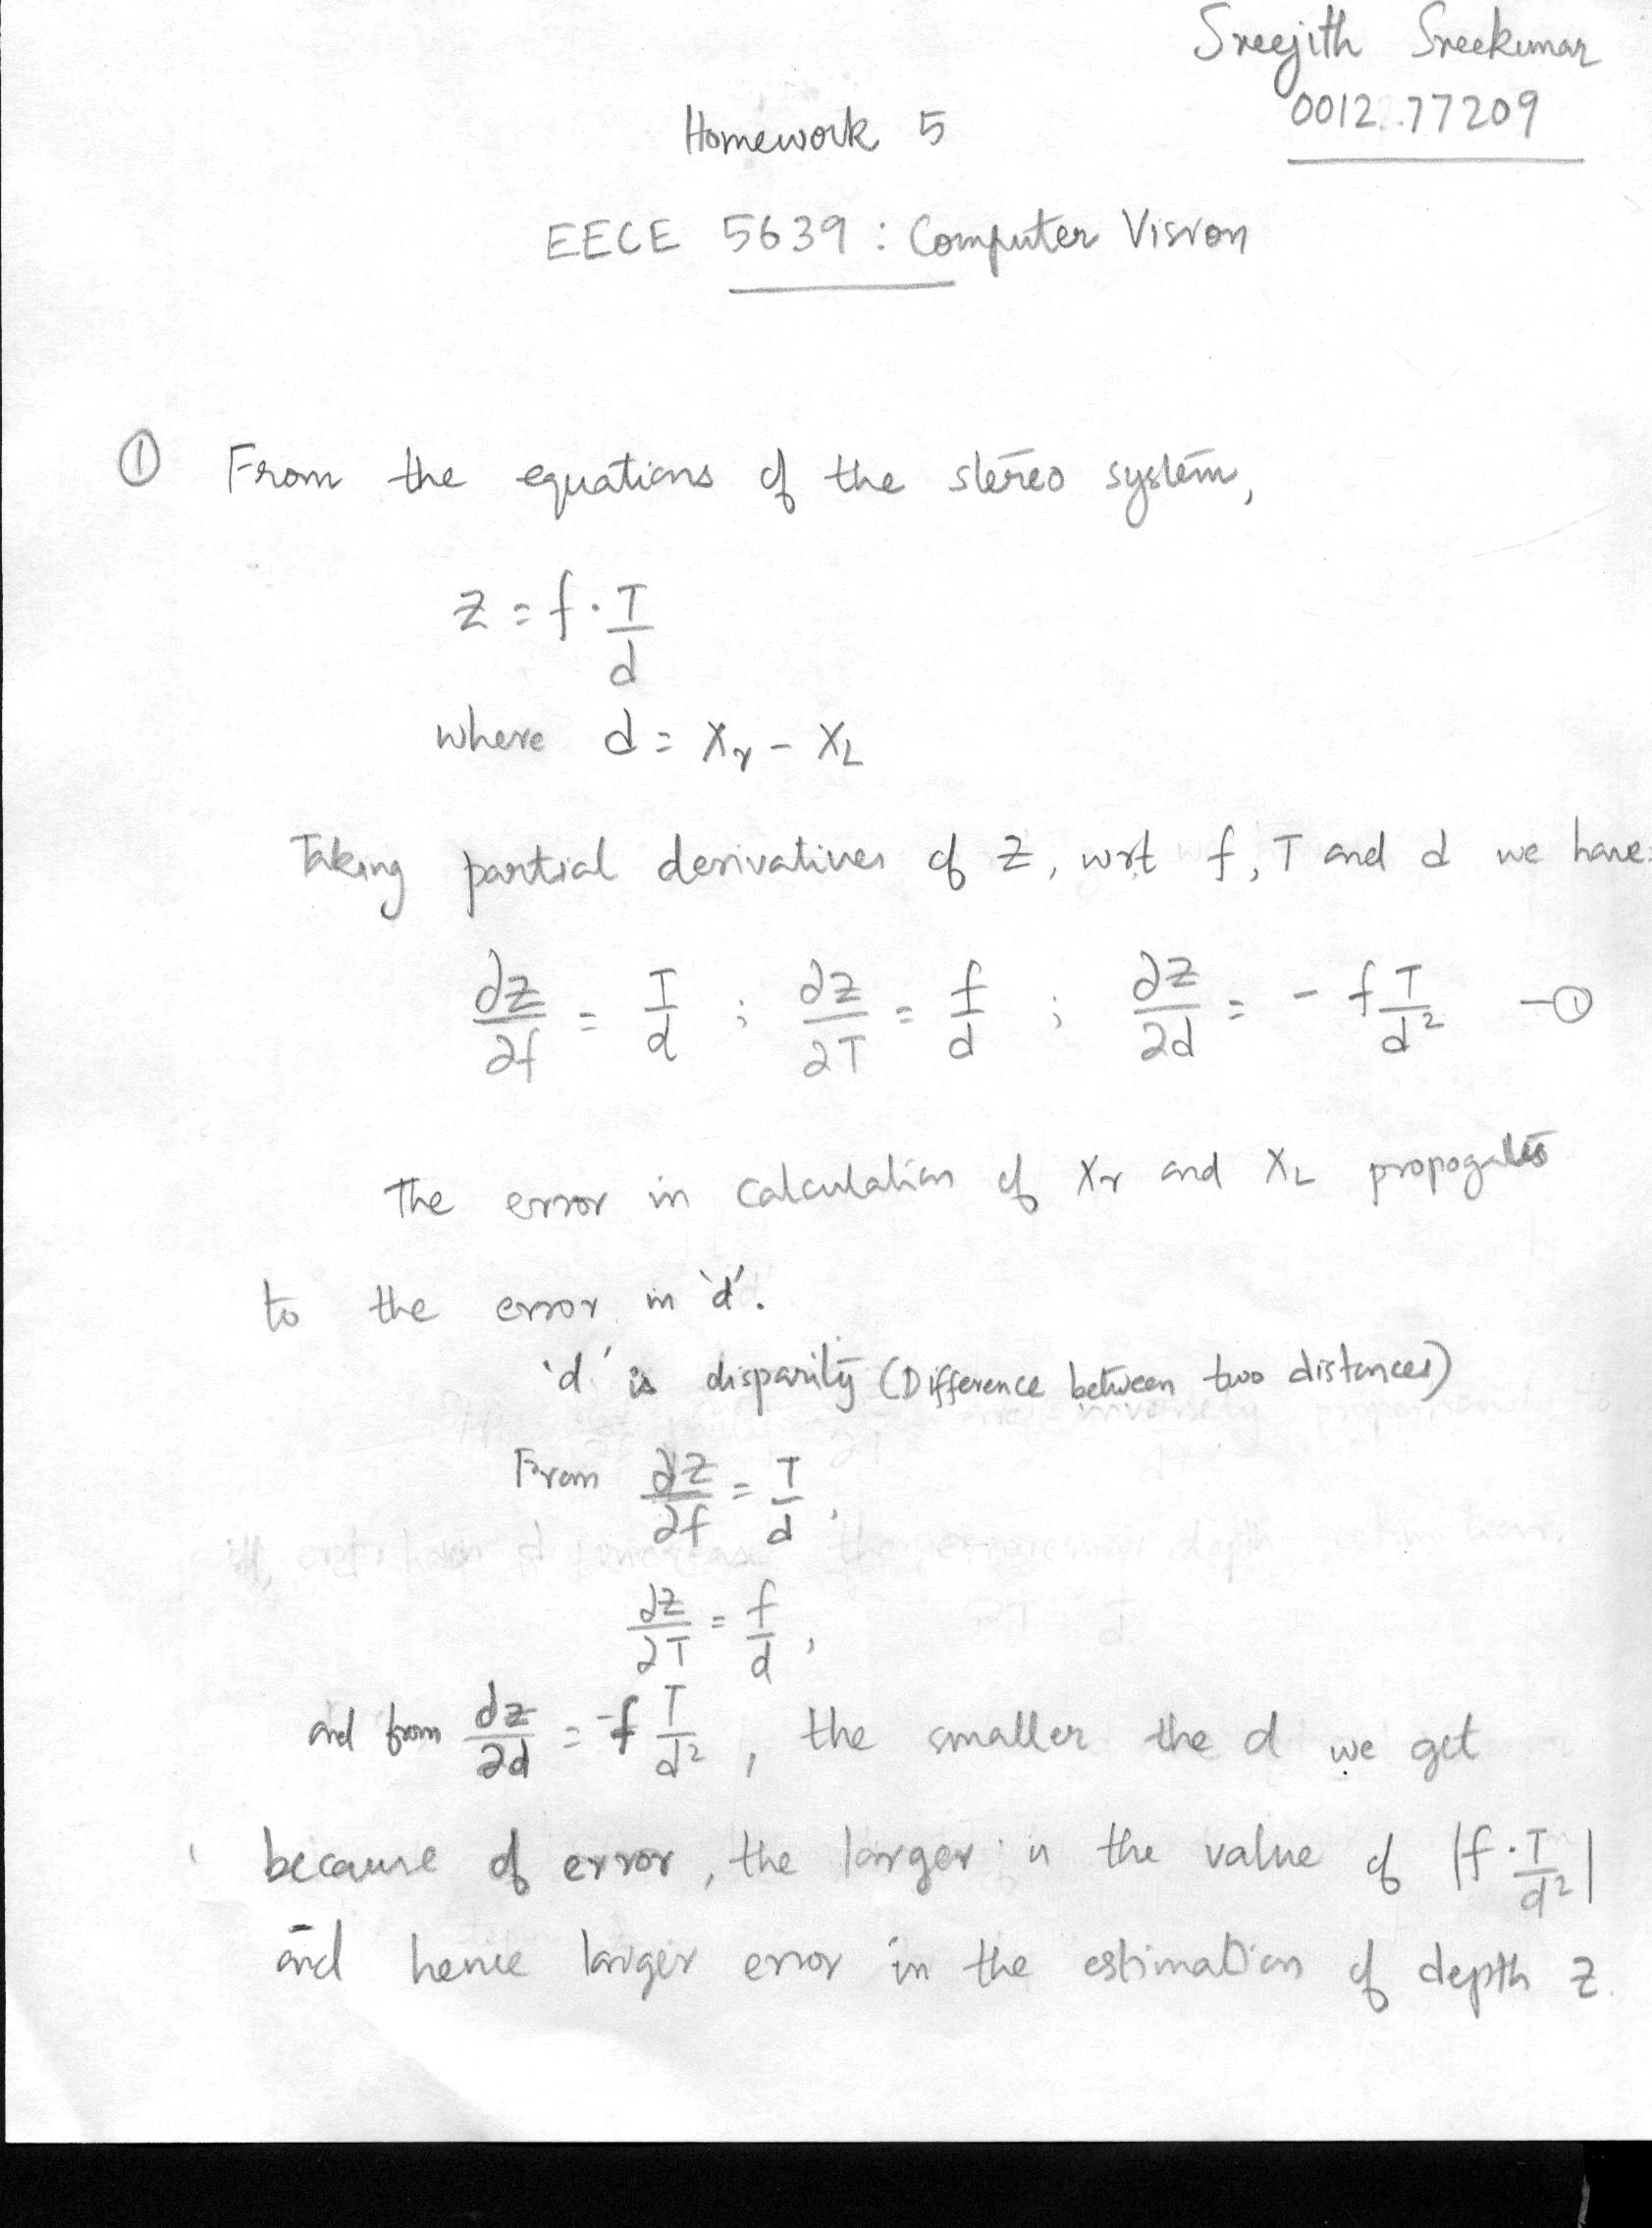 Sreejith Sreekumar
001277209
Homework 5
EECE 5639 : Computer Vision
① From the equations of the stereo system,
z = f · T/d
where d = Xr - XL
Taking partial derivatives of z, wrt f, T and d we have:
∂z/∂f = T/d ; ∂z/∂T = f/d ; ∂z/∂d = - f T/d² - ①
The error in calculation of Xr and XL propogates
to the error in 'd'.
'd' is disparity (Difference between two distances)
From ∂z/∂f = T/d,
∂z/∂T = f/d,
and from ∂z/∂d = -f T/d², the smaller the d we get
because of error, the larger is the value of |f · T/d²|
and hence larger error in the estimation of depth z.